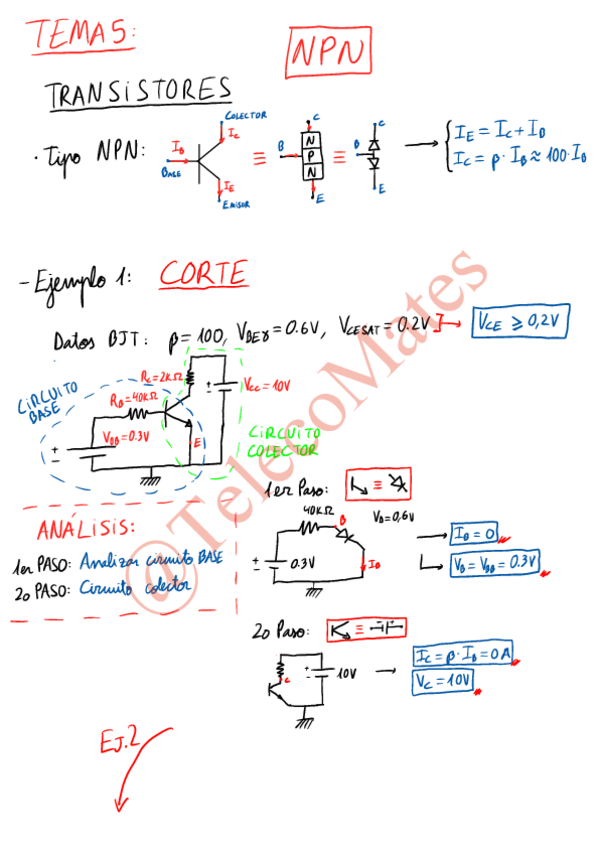 TEMA 5:
NPN
TRANSISTORES
· Tipo NPN:
COLECTOR
I_B
I_C
BASE
I_E
EMISOR
≡
C
B
N
P
N
E
≡
C
B
E
→
I_E = I_C + I_B
I_C = β · I_B ≈ 100 · I_B
- Ejemplo 1: CORTE
Datos BJT: β = 100, V_BEγ = 0.6V, V_CESAT = 0.2V → V_CE ⩾ 0,2V
CIRCUITO BASE
R_C = 2KΩ
V_CC = 10V
R_B = 40KΩ
V_BB = 0.3V
E
CIRCUITO
COLECTOR
ANÁLISIS:
1er PASO: Analizar circuito BASE
2o PASO: Circuito colector
1er Paso:
≡
40KΩ
B
V_B = 0,6V
0.3V
I_B
→ I_B = 0
V_B = V_BB = 0.3V
2o Paso:
≡
C
10V
→ I_C = β · I_B = 0 A
V_C = 10V
EJ.2
@TelecoMates